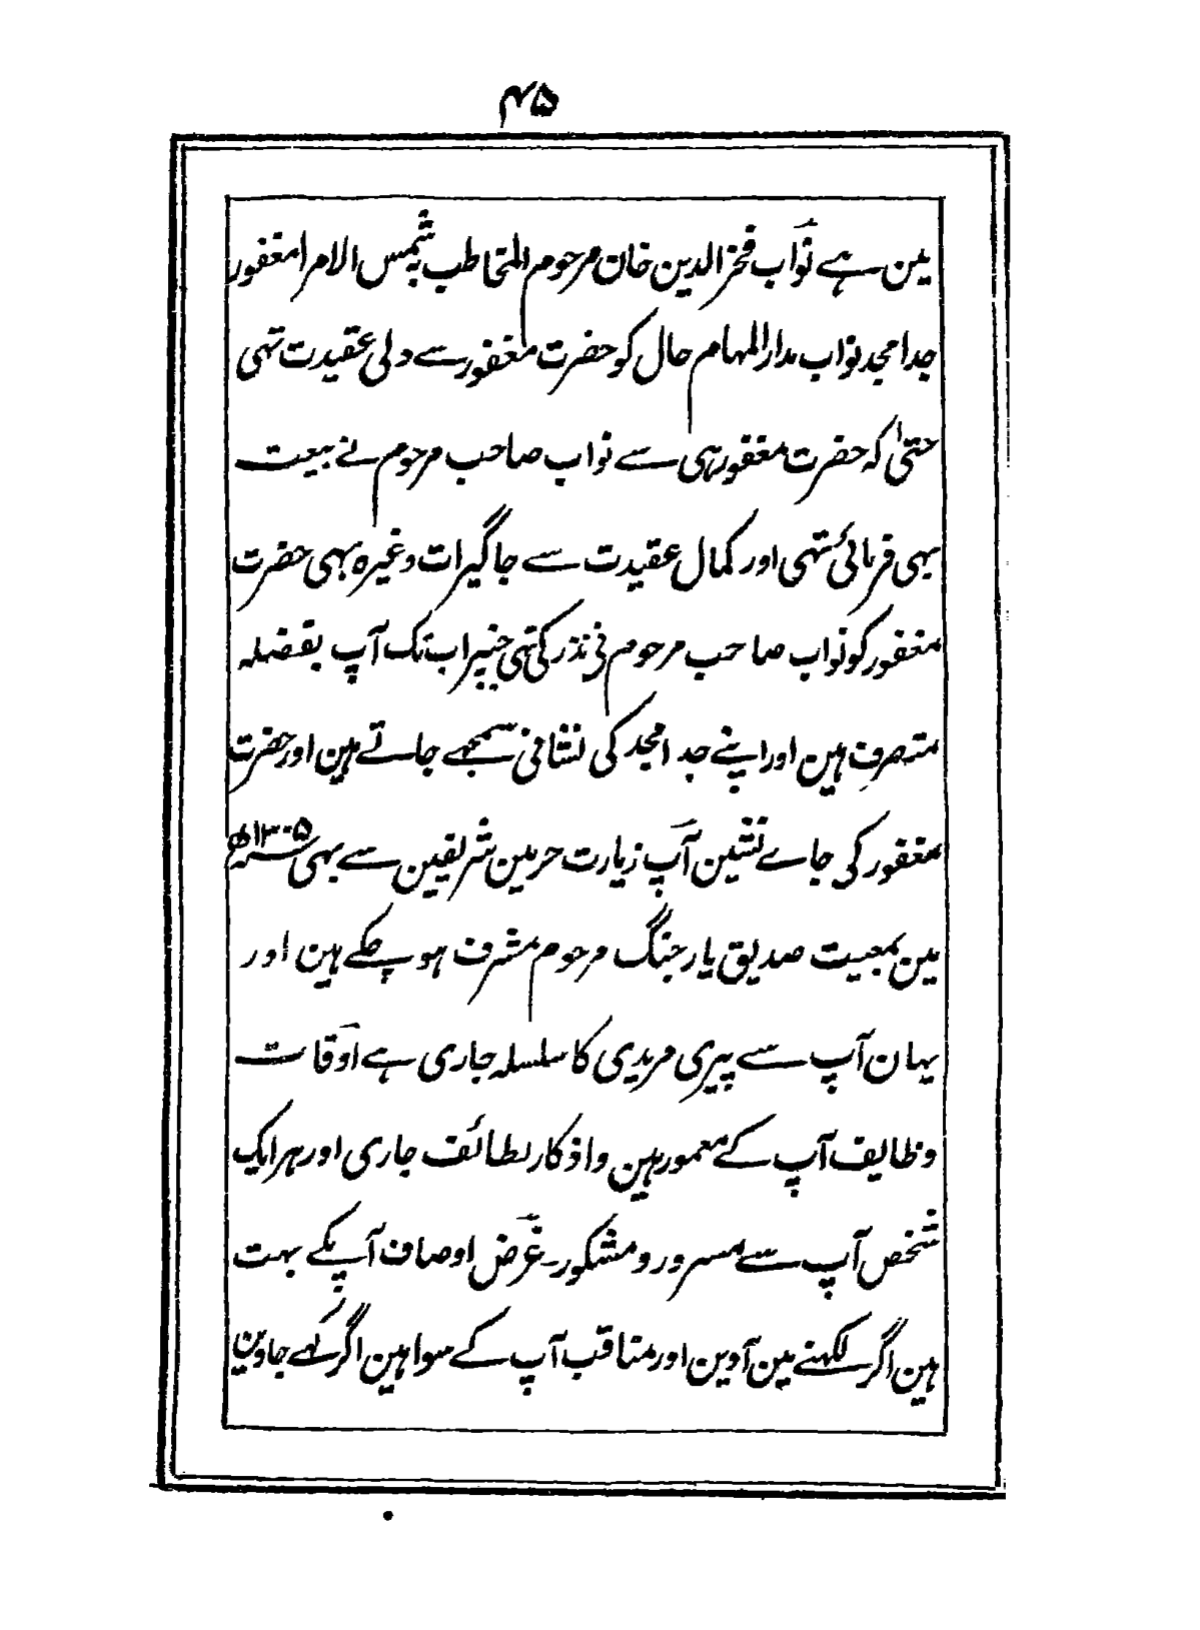 ۴۵
مین ہے نوَاب فخر الدین خان مرحوم المخاطب بہ شمس الامرا مغفور
جد امجد نواب مدار المہام حال کو حضرت مغفور سے دلی عقیدت تہی
حتیٰ کہ حضرت مغفور ہی سے نواب صاحب مرحوم نے بیعت
بہی فرمائی تہی اور کمال عقیدت سے جاگیرات وغیرہ بہی حضرت
مغفور کو نواب صاحب مرحوم نی نذر کی تہی جنپر اب تک آپ بفضلہ
متصرف ہین اور اپنے جد امجد کی نشانی سمجہے جاتے ہین اور حضرت
مغفور کی جاے نشین آپ زیارت حرمین شریفین سے بہی سنہ ۱۳۰۵ھ
مین بمعیت صدیق یار جنگ مرحوم مشرف ہو چکے ہین اور
یہان آپ سے پیری مریدی کا سلسلہ جاری ہے اوقات
وظایف آپ کے معمور ہین و اذکار لطائف جاری اور ہر ایک
شخص آپ سے مسرور و مشکور ۔ غرض اوصاف آپکے بہت
ہین اگر لکہنے مین آوین اور مناقب آپ کے سوا ہین اگر کہے جاوین